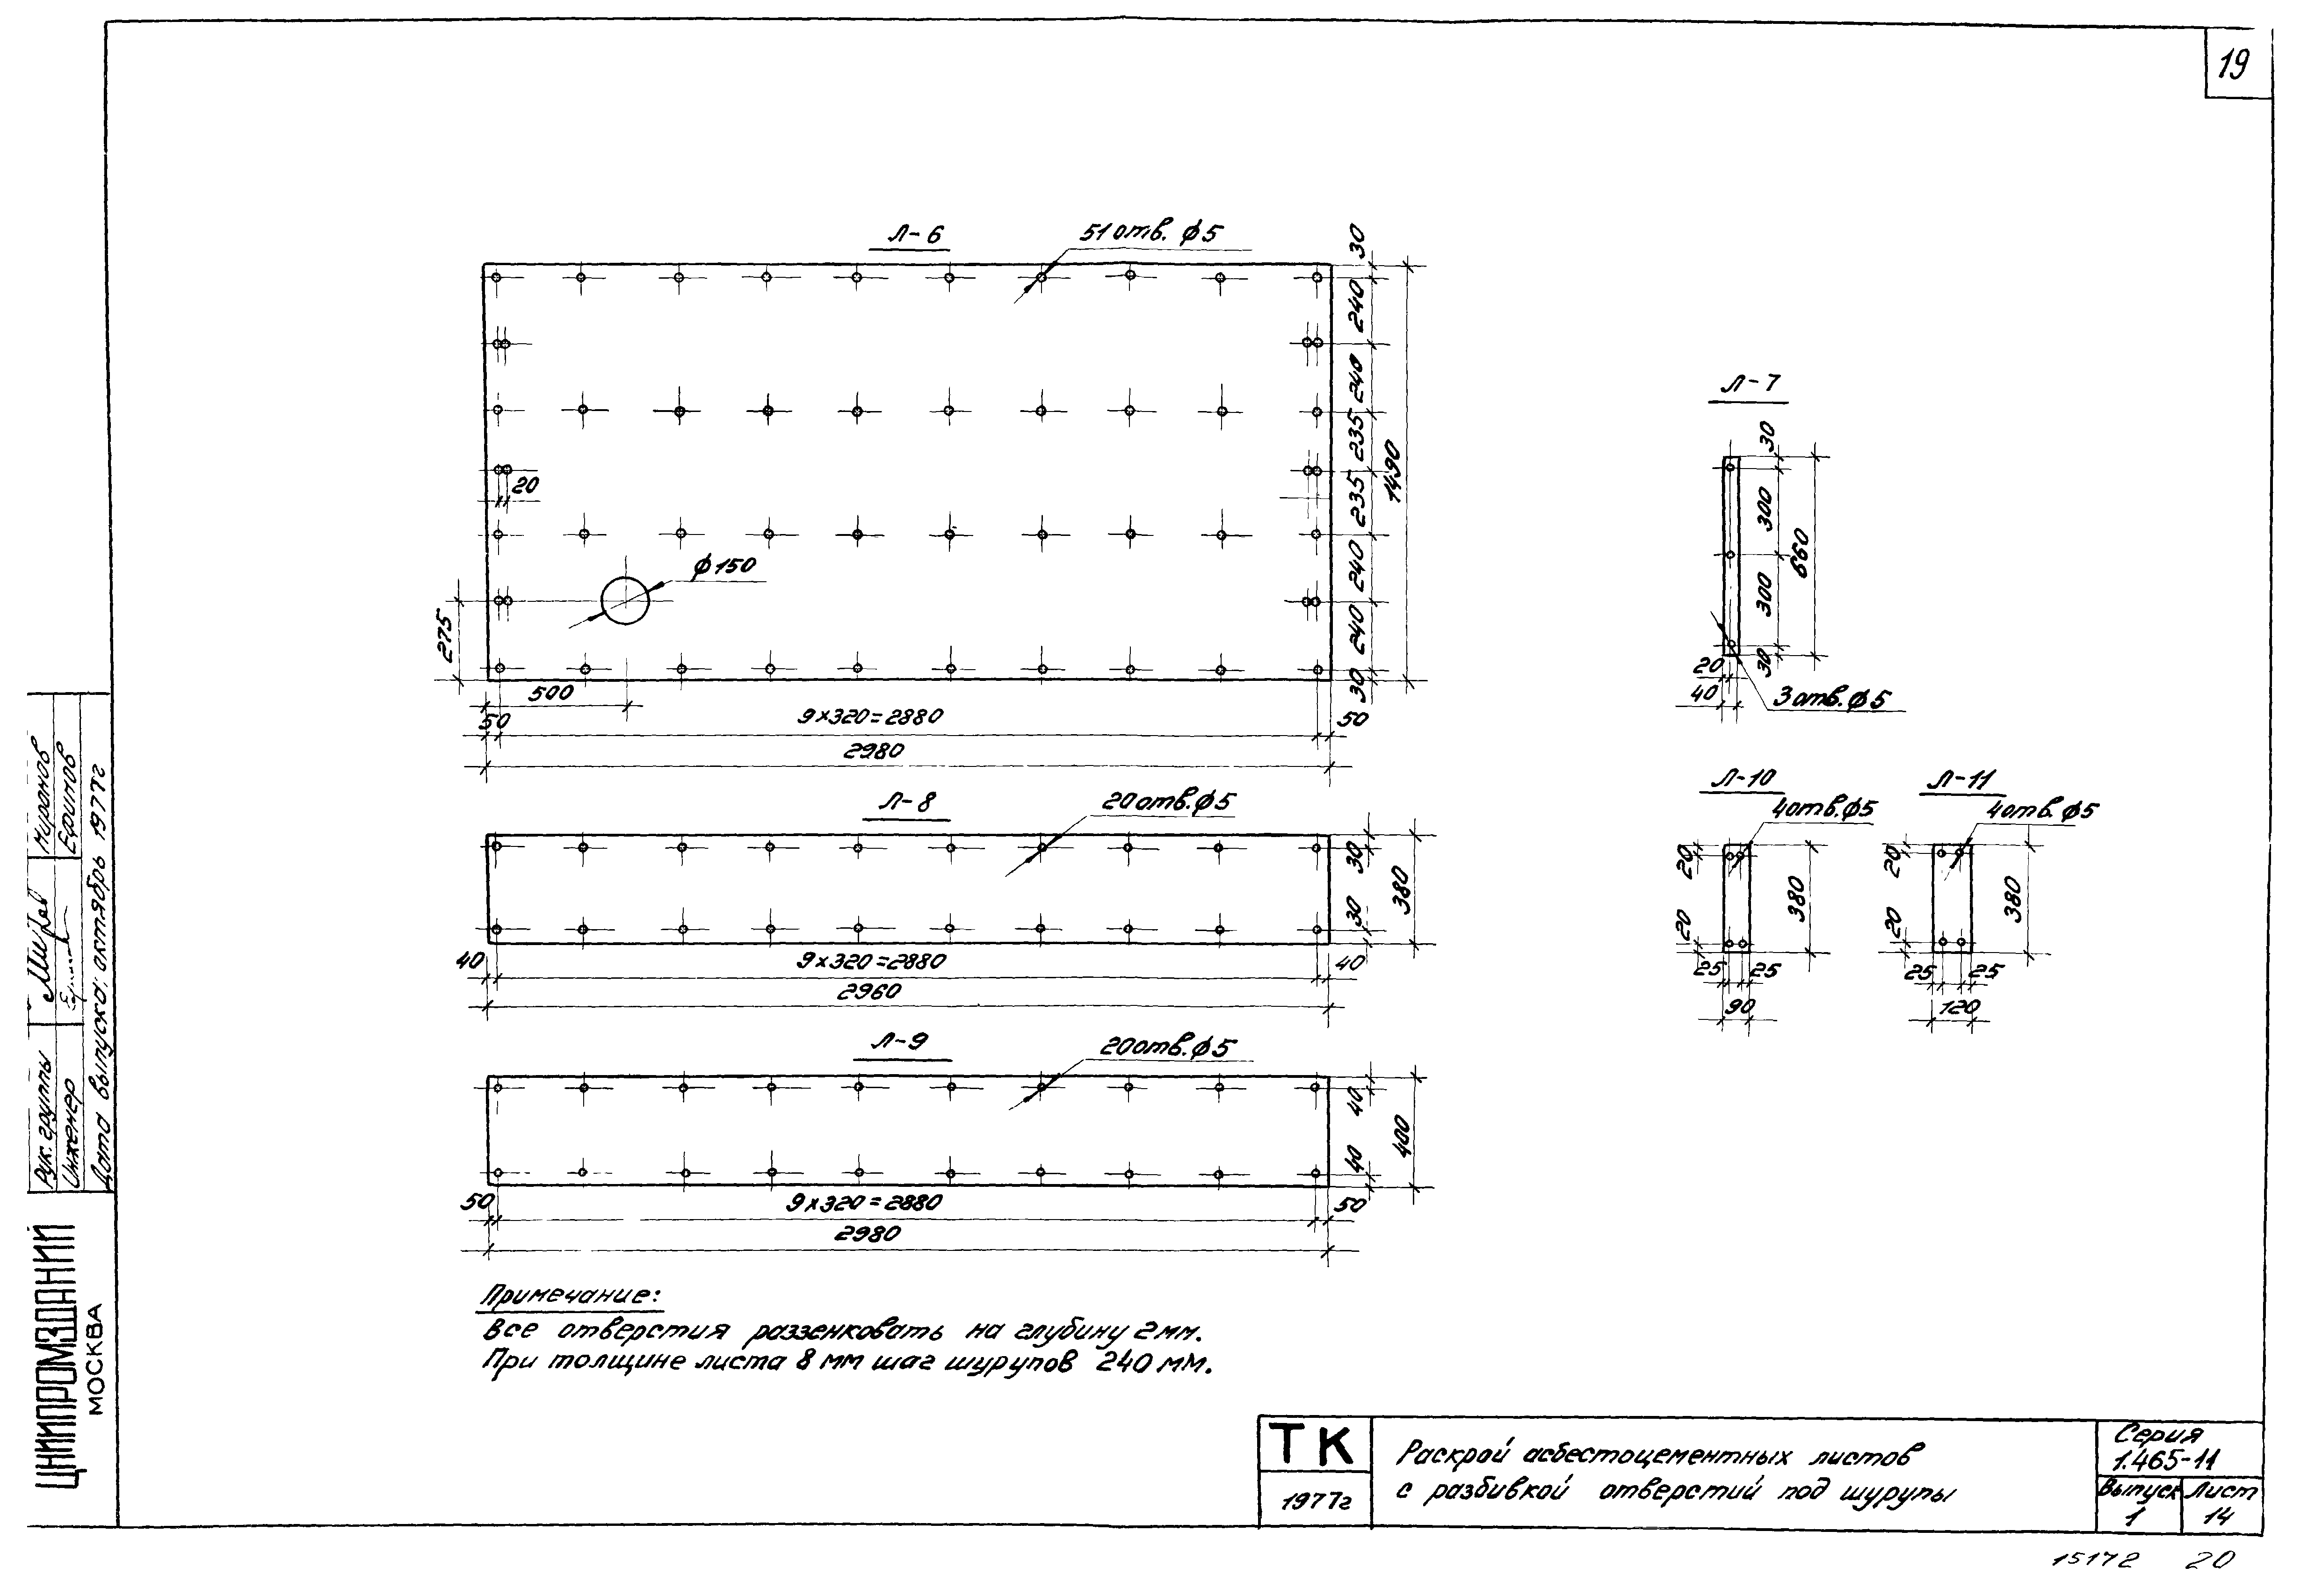 19
Л-6
51 отв. ϕ5
30
240
240
235
235
240
240
30
1490
20
ϕ150
275
500
50
9×320=2880
50
2980
Л-7
30
300
300
30
660
20
40
3 отв. ϕ5
Л-8
20 отв. ϕ5
30
30
380
40
9×320=2880
40
2960
Л-10
4 отв. ϕ5
20
20
380
25
25
90
Л-11
4 отв. ϕ5
20
20
380
25
25
120
Л-9
20 отв. ϕ5
40
40
400
50
9×320=2880
50
2980
Примечание:
Все отверстия раззенковать на глубину 2мм.
При толщине листа 8 мм шаг шурупов 240 мм.
Рук. группы
Инженер
Ефимов
Дата выпуска: октябрь 1977г
ЦНИИПРОМЗДАНИЙ
МОСКВА
ТК
1977г
Раскрой асбестоцементных листов
с разбивкой отверстий под шурупы
Серия
1.465-11
Выпуск
1
Лист
14
15172 20